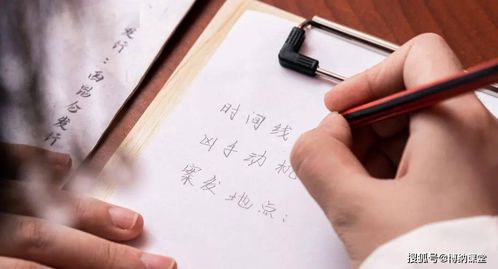 发行：西 发行
时间线
凶手动机
案发地点：
搜狐号@博纳课堂